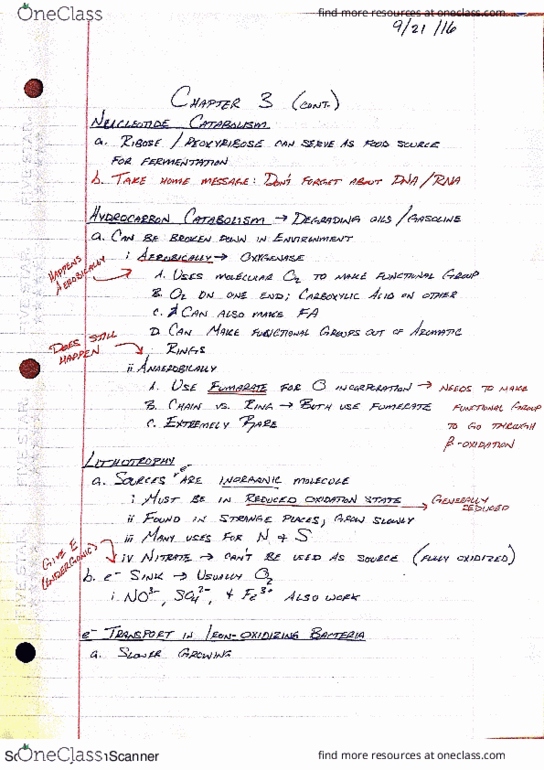 OneClass
find more resources at oneclass.com
9/21/16
CHAPTER 3 (CONT.)
NUCLEOTIDE CATABOLISM
a. RIBOSE / DEOXYRIBOSE CAN SERVE AS FOOD SOURCE
FOR FERMENTATION
b. TAKE HOME MESSAGE: DON'T FORGET ABOUT DNA/RNA
HYDROCARBON CATABOLISM → DEGRADING OILS/GASOLINE
a. CAN BE BROKEN DOWN IN ENVIRONMENT
HAPPENS AEROBICALLY
i AEROBICALLY → OXYGENASE
A. USES MOLECULAR O2 TO MAKE FUNCTIONAL GROUP
B. O2 ON ONE END; CARBOXYLIC ACID ON OTHER
C. CAN ALSO MAKE FA
D. CAN MAKE FUNCTIONAL GROUPS OUT OF AROMATIC
RINGS
DOES STILL HAPPEN
ii ANAEROBICALLY
A. USE FUMARATE FOR O INCORPORATION → NEEDS TO MAKE
B. CHAIN VS. RING → BOTH USE FUMERATE FUNCTIONAL GROUP
C. EXTREMELY RARE TO GO THROUGH
β-OXIDATION
LITHOTROPHY
a. SOURCES e- ARE INORGANIC MOLECULE
i MUST BE IN REDUCED OXIDATION STATE → GENERALLY REDUCED
ii FOUND IN STRANGE PLACES, GROW SLOWLY
iii MANY USES FOR N & S
GIVE E
iv NITRATE → CAN'T BE USED AS SOURCE (FULLY OXIDIZED)
b. e- SINK → USUALLY O2
i. NO3-, SO4 2-, + Fe3+ ALSO WORK
e- TRANSPORT IN IRON-OXIDIZING BACTERIA
a. SLOWER GROWING
FIVE STAR.
FIVE STAR.
FIVE STAR.
OneClass
Scanner
find more resources at oneclass.com